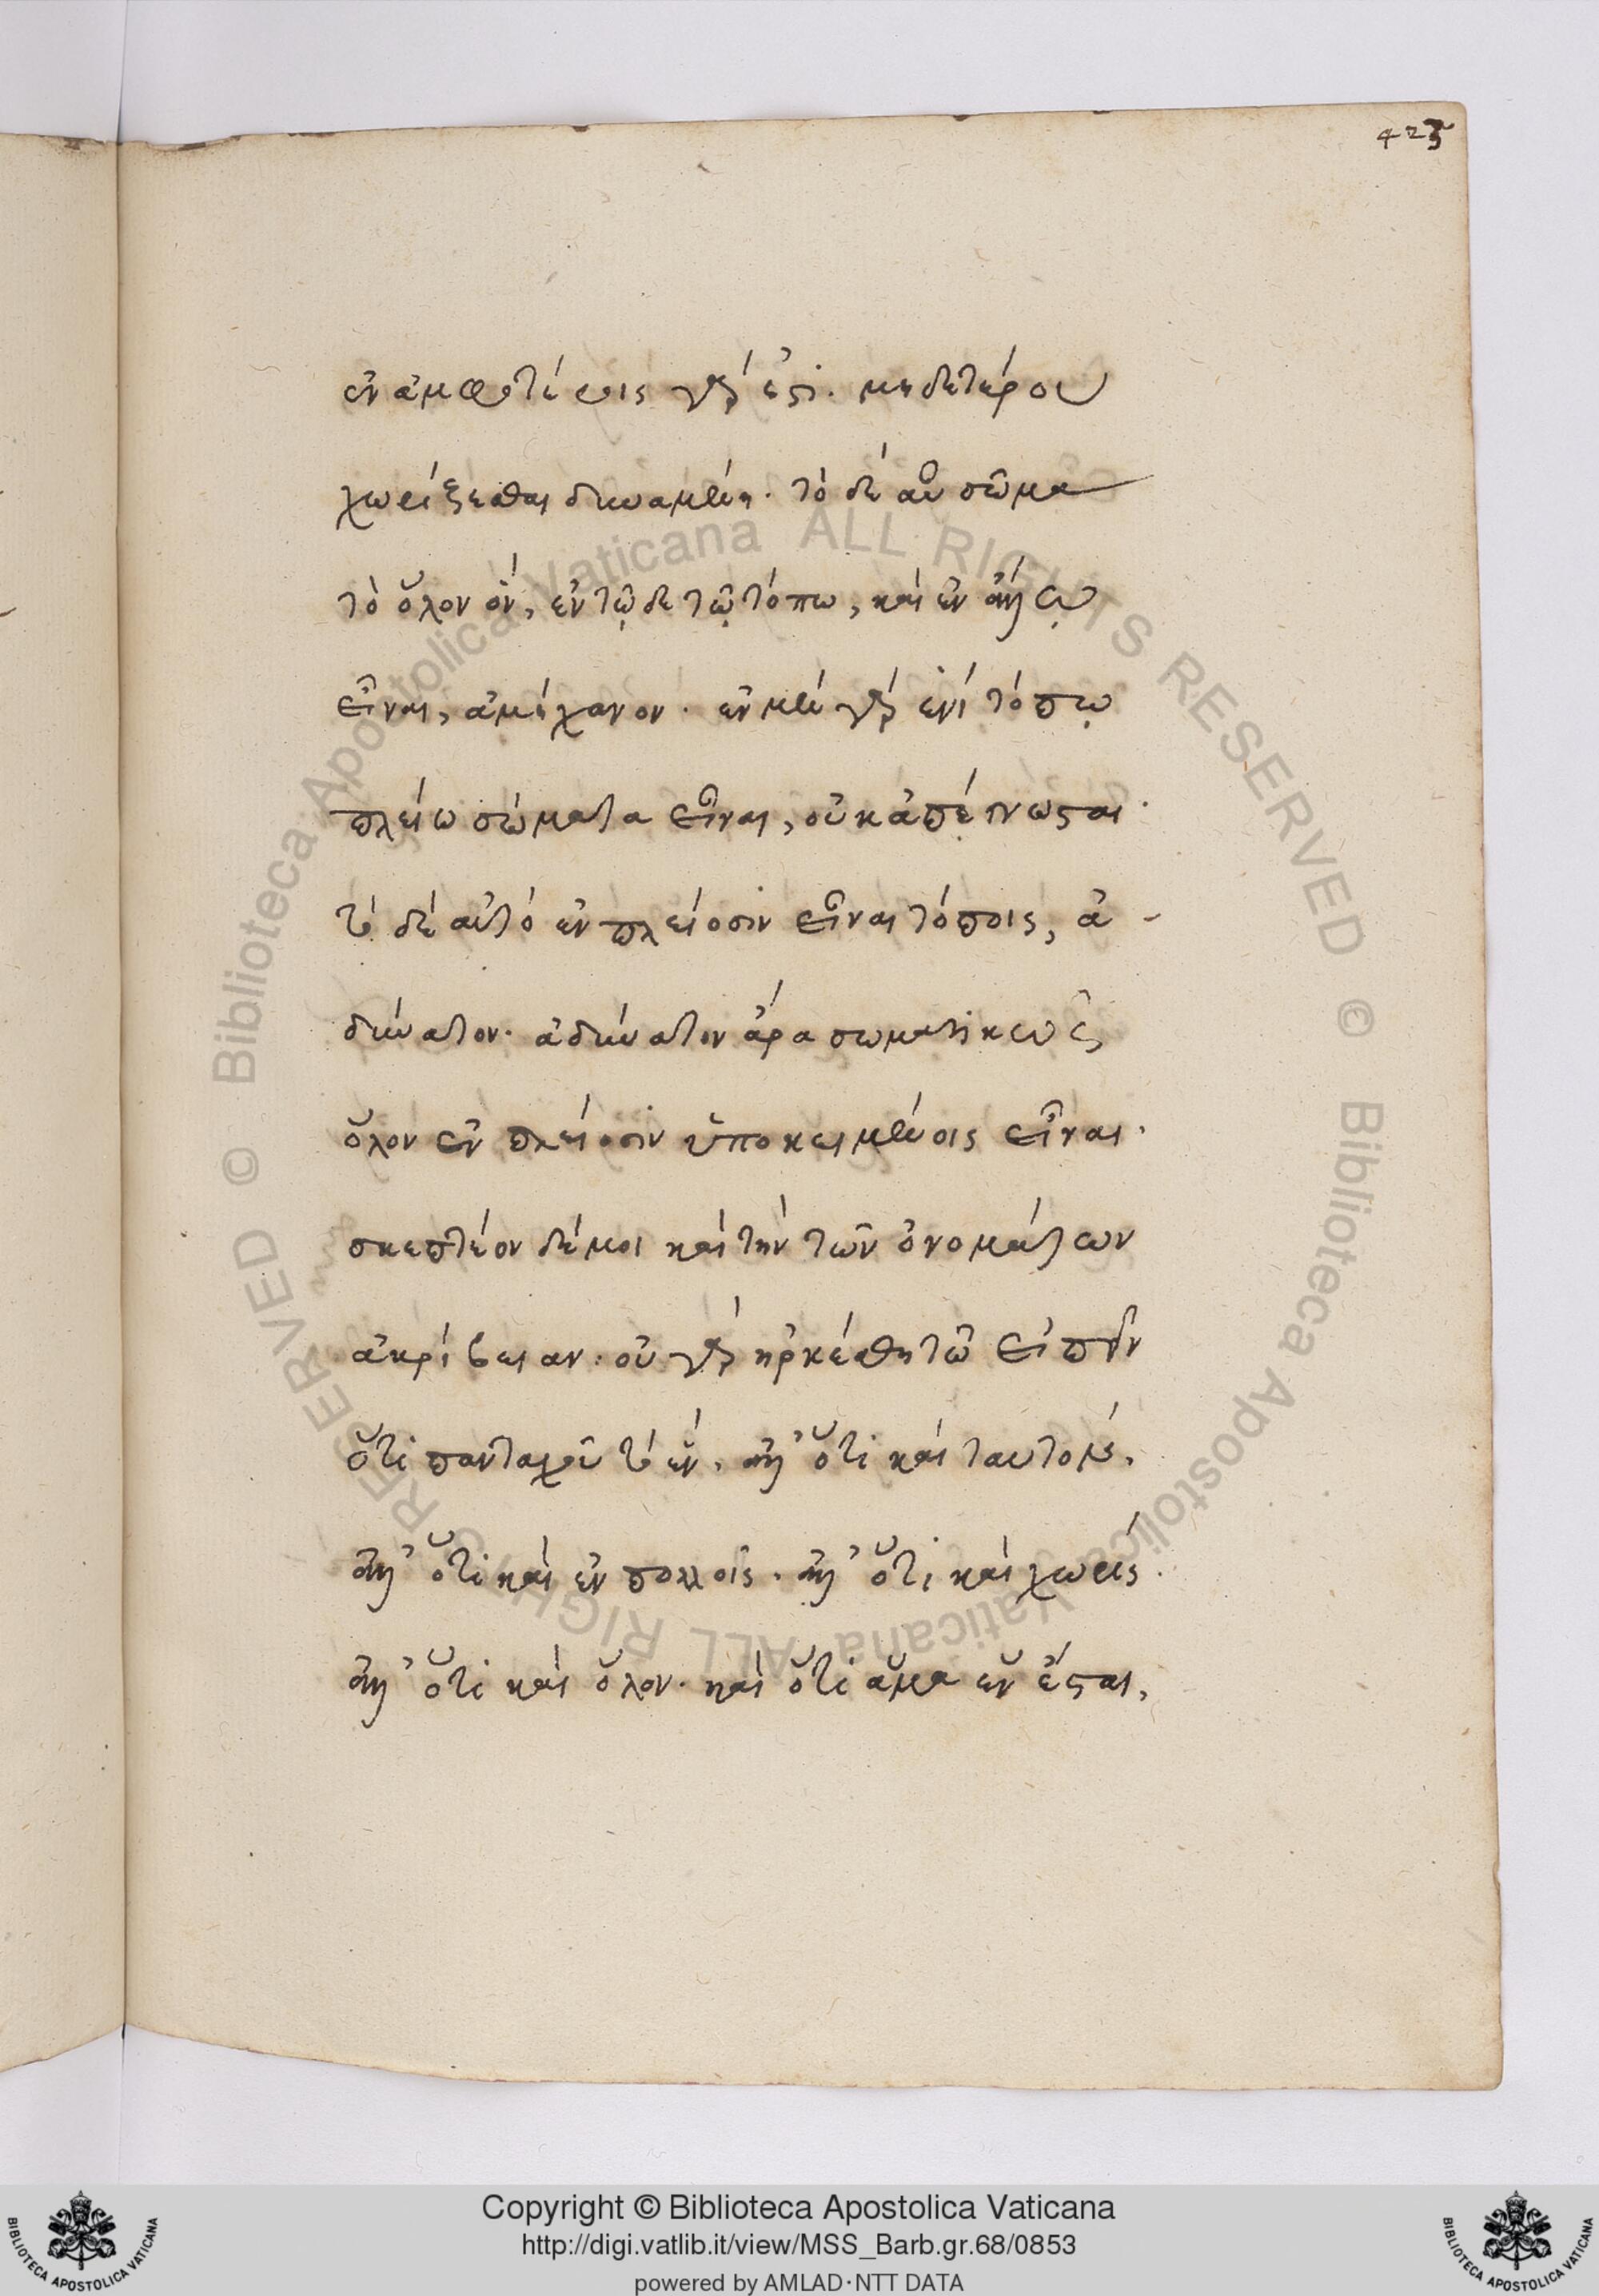 423
ἐν ἀμφοτέροις γάρ ἐστι. μηδετέρου
χωρίζεσθαι δυναμένη. τὸ δὲ αὖ σῶμα
τὸ ὅλον ὂν, ἐν τῷδε τῷ τόπω, καὶ ἐν ἄλλῳ
εἶναι, ἀμήχανον. ἐν μὲν γὰρ ἑνὶ τόπῳ
πλείω σώματα εἶναι, οὐκ ἀπέγνωσται.
τὸ δὲ αὐτὸ ἐν πλείοσιν εἶναι τόποις, ἀ-
δύνατον. ἀδύνατον ἄρα σωματικῶς
ὅλον ἐν πλείοσιν ὑποκειμένοις εἶναι.
σκεπτέον δέ μοι καὶ τὴν τῶν ὀνομάτων
ἀκρίβειαν. οὐ γὰρ ἠρκέσθη τῶ εἰπεῖν
ὅτι πανταχοῦ τὸ ἓν. ἀλλ' ὅτι καὶ ταυτόν.
ἀλλ' ὅτι καὶ ἐν πολλοῖς. ἀλλ' ὅτι καὶ χωρίς.
ἀλλ' ὅτι καὶ ὅλον. καὶ ὅτι ἅμα ἓν ἔσται,
Biblioteca Apostolica Vaticana ALL RIGHTS RESERVED ©
Biblioteca Apostolica Vaticana ALL RIGHTS RESERVED ©
Copyright © Biblioteca Apostolica Vaticana
http://digi.vatlib.it/view/MSS_Barb.gr.68/0853
powered by AMLAD·NTT DATA
BIBLIOTECA APOSTOLICA VATICANA
BIBLIOTECA APOSTOLICA VATICANA